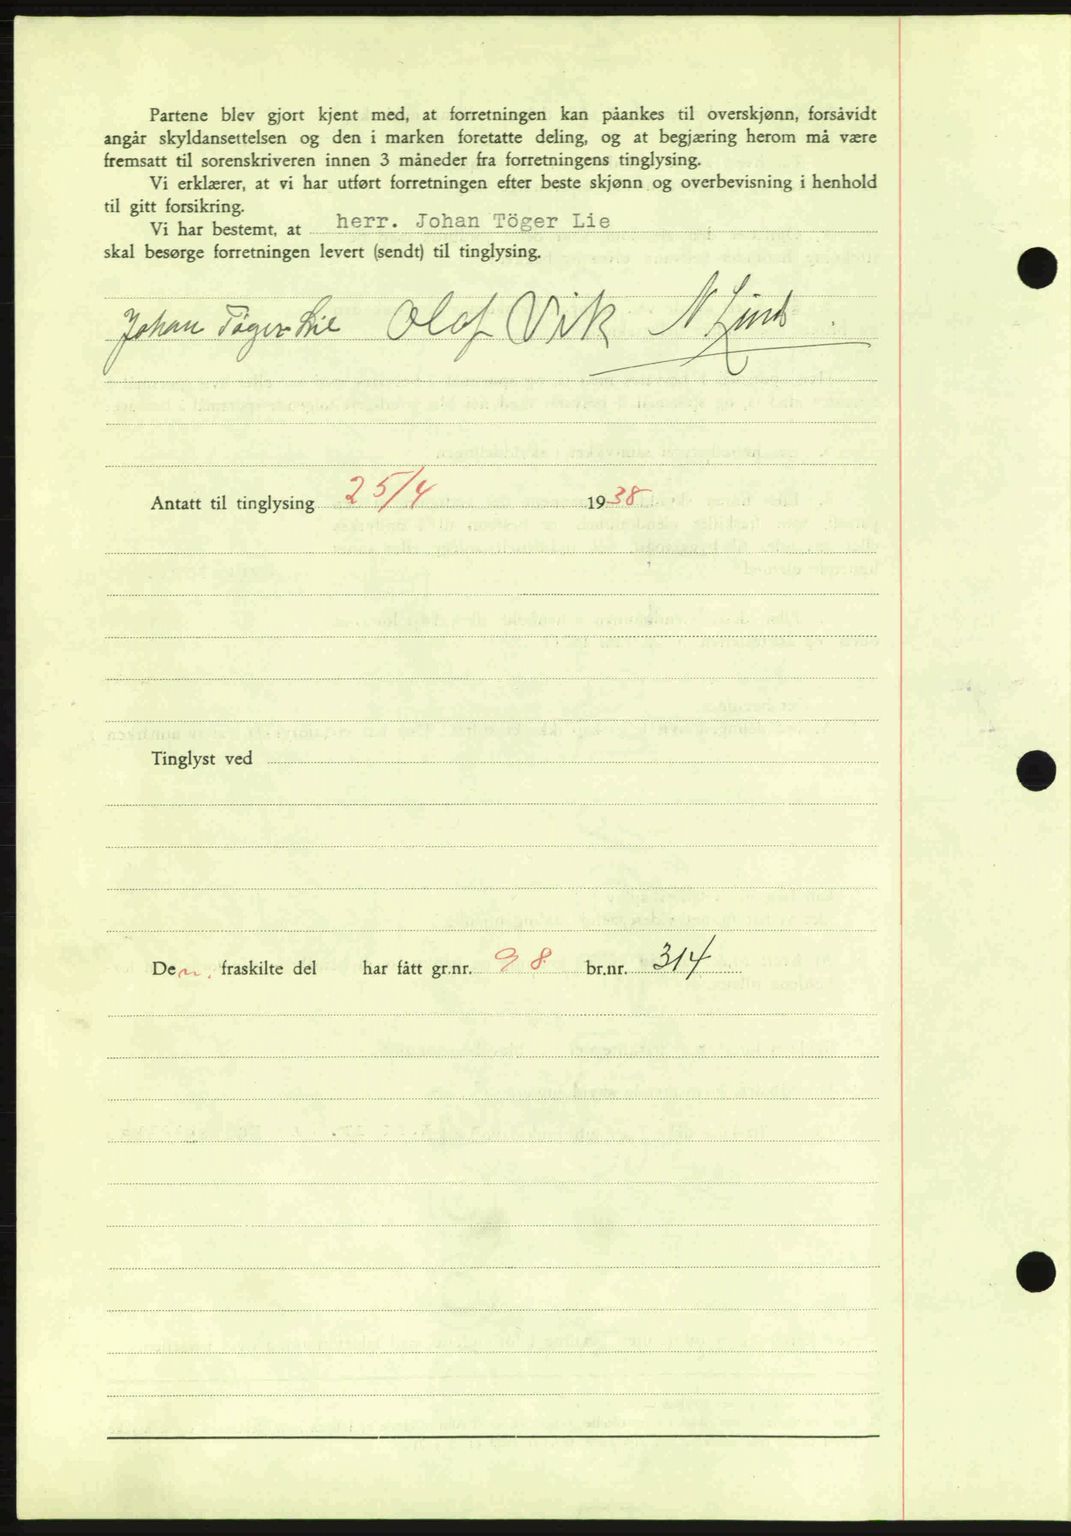 Partene blev gjort kjent med, at forretningen kan påankes til overskjønn, forsåvidt
angår skyldansettelsen og den i marken foretatte deling, og at begjæring herom må være
fremsatt til sorenskriveren innen 3 måneder fra forretningens tinglysing.
Vi erklærer, at vi har utført forretningen efter beste skjønn og overbevisning i henhold
til gitt forsikring.
Vi har bestemt, at herr. Johan Töger Lie
skal besørge forretningen levert (sendt) til tinglysing.
Johan Töger Lie Olaf Vik N Lind
Antatt til tinglysing 25/4 1938
Tinglyst ved
Den. fraskilte del har fått gr.nr. 98 br.nr. 314